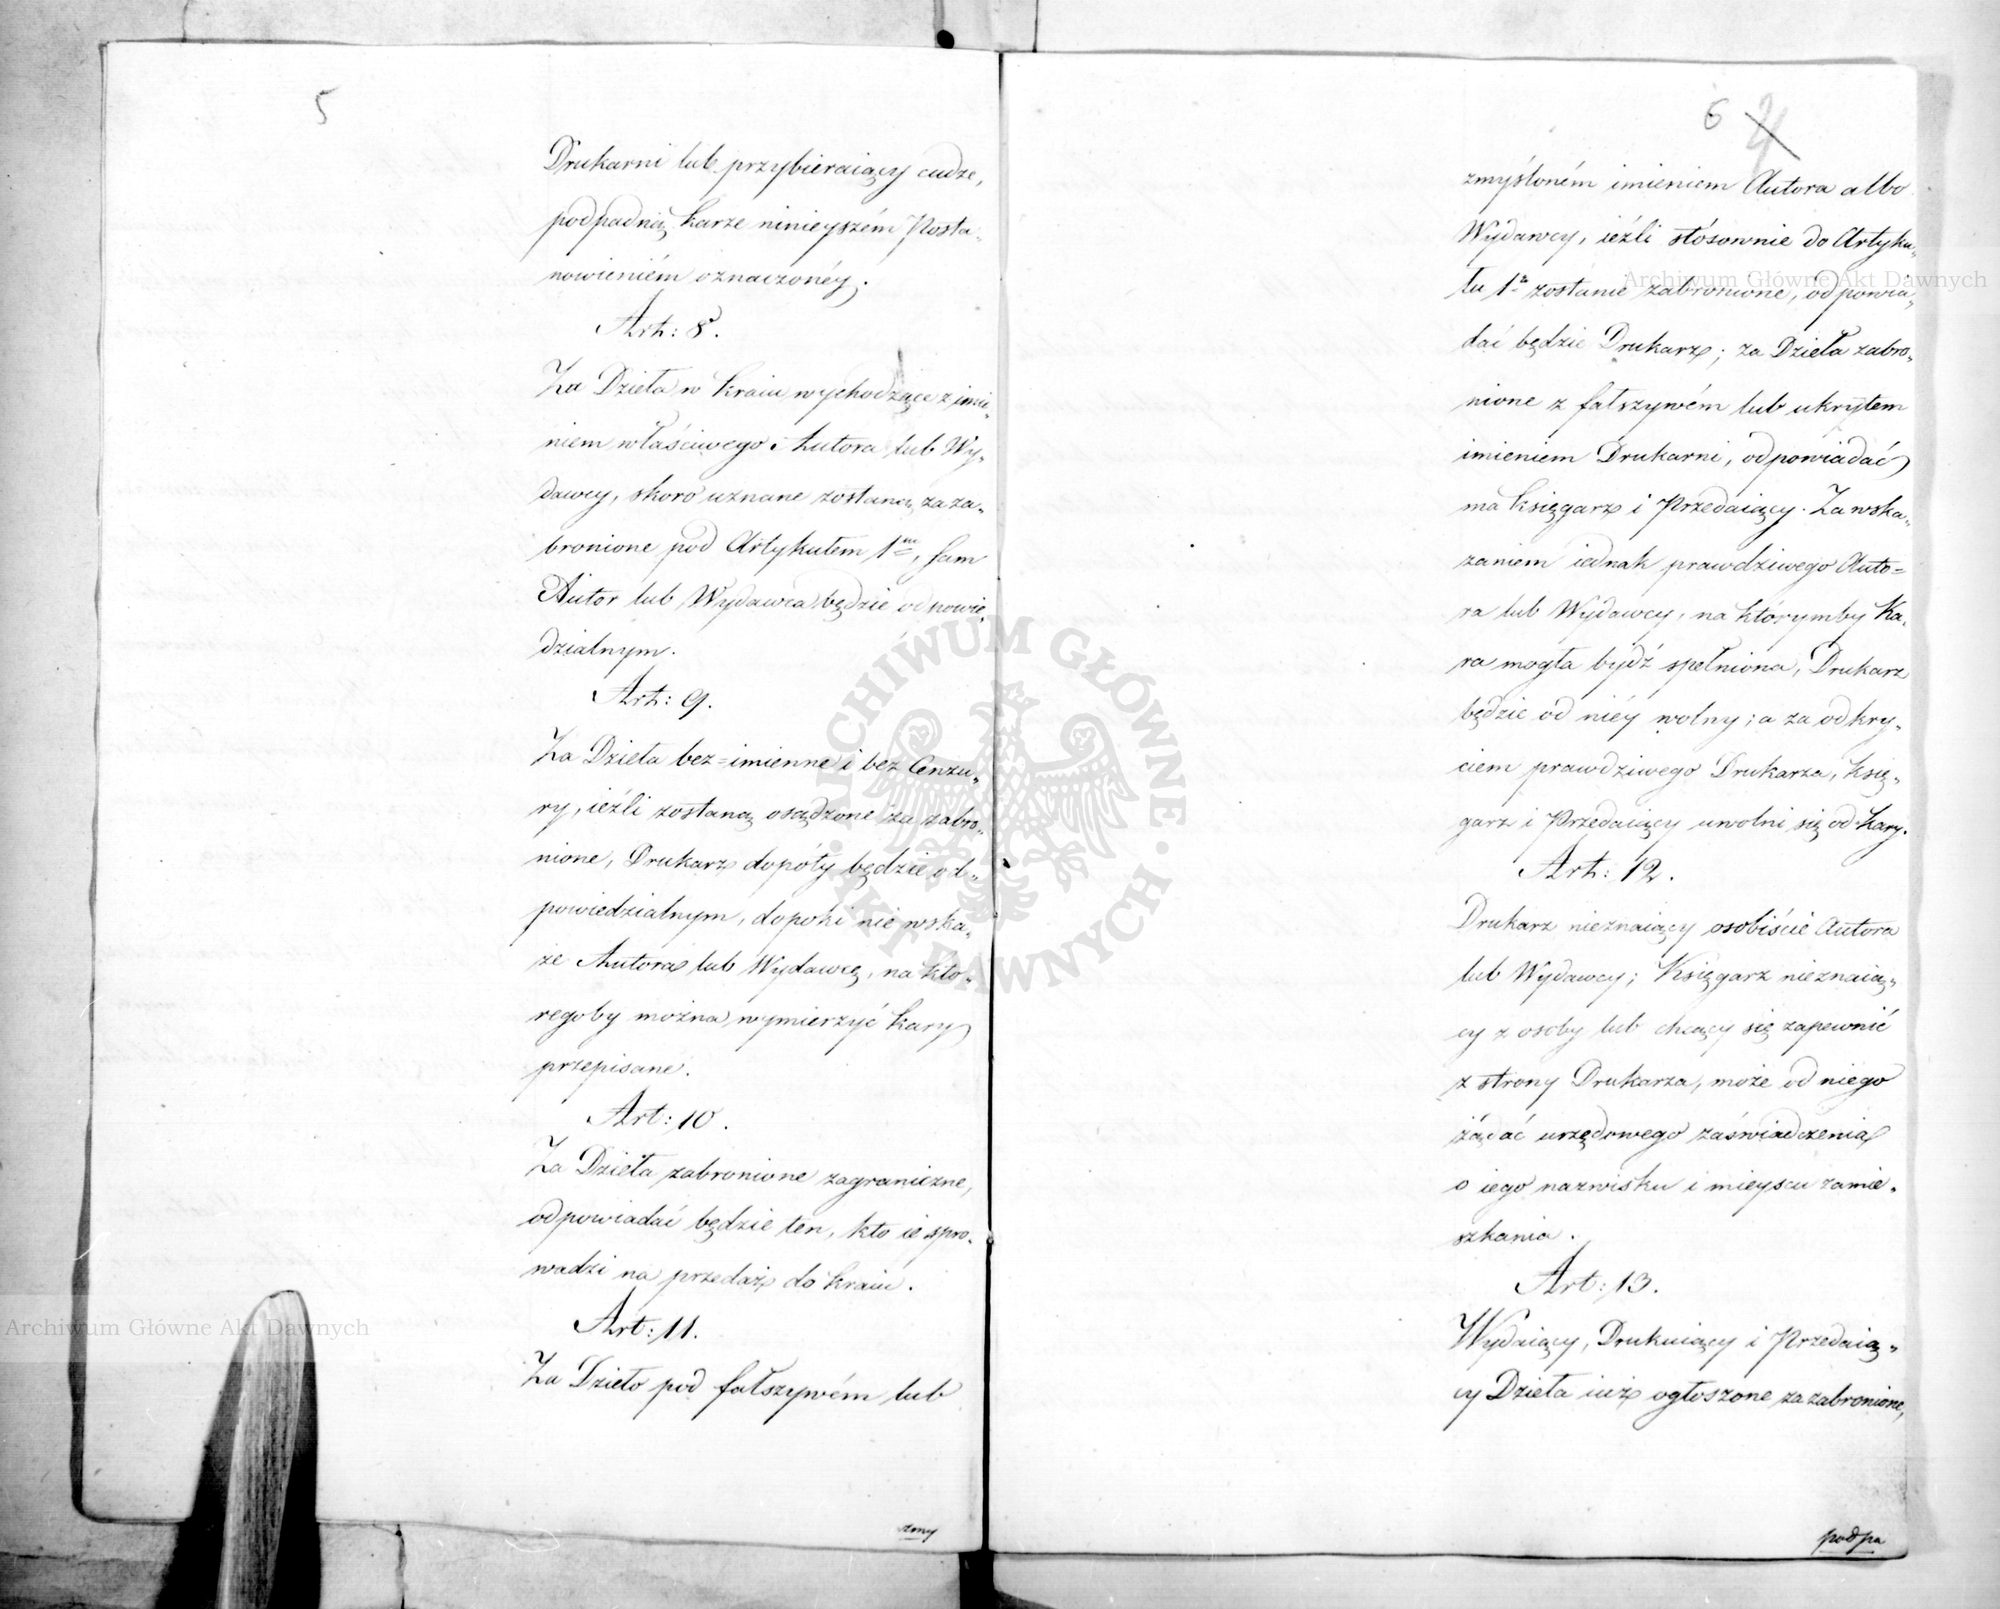 5
Drukarni lub przybieraiący cudze,
podpadną karze ninieyszém Posta-
nowieniém oznaczonéy.
Art: 8.
Za Dzieła w kraiu wychodzące z imie-
niem właściwego Autora lub Wy-
dawcy, skoro uznane zostaną za za-
bronione pod Artykułem 1m, sam
Autor lub Wydawca będzie odpowie-
dzialnym.
Art: 9.
Za Dzieła bez=imienne i bez Cenzu-
ry, ieźli zostaną osądzone za zabro-
nione, Drukarz dopóty będzie od-
powiedzialnym, dopoki nie wska-
że Autora lub Wydawcę, na kto-
regoby można wymierzyć kary
przepisane.
Art: 10.
Za Dzieła zabronione zagraniczne,
odpowiadać będzie ten, kto ie spro-
wadzi na przedaż do kraiu.
Art: 11.
Za Dzieło pod fałszywém lub
zmy
6
zmyśloném imieniem Autora albo
Wydawcy, ieźli stósownie do Artyku-
łu 1o zostanie zabronione, odpowia-
dać będzie Drukarz; za Dzieła zabro-
nione z fałszywém lub ukrytem
imieniem Drukarni, odpowiadać
ma księgarz i Przedaiący. Za wska-
zaniem iednak prawdziwego Auto=
ra lub Wydawcy, na ktorymby Ka-
ra mogła bydź spełniona, Drukarz
będzie od niéy wolny; a za odkry-
ciem prawdziwego Drukarza, księ-
garz i Przedaiący uwolni się od kary.
Art: 12.
Drukarz nieznaiący osobiście Autora
lub Wydawcy; Księgarz nieznaią-
cy z osoby lub chcący się zapewnić
z strony Drukarza, może od niego
żądać urzędowego zaświadczenia
o iego nazwisku i mieyscu zamie-
szkania.
Art: 13.
Wydaiący, Drukuiący i Przedaią-
cy Dzieła iuż ogłoszone za zabronione,
podpa
Archiwum Główne Akt Dawnych
Archiwum Główne Akt Dawnych
ARCHIWUM GŁÓWNE · AKT DAWNYCH ·